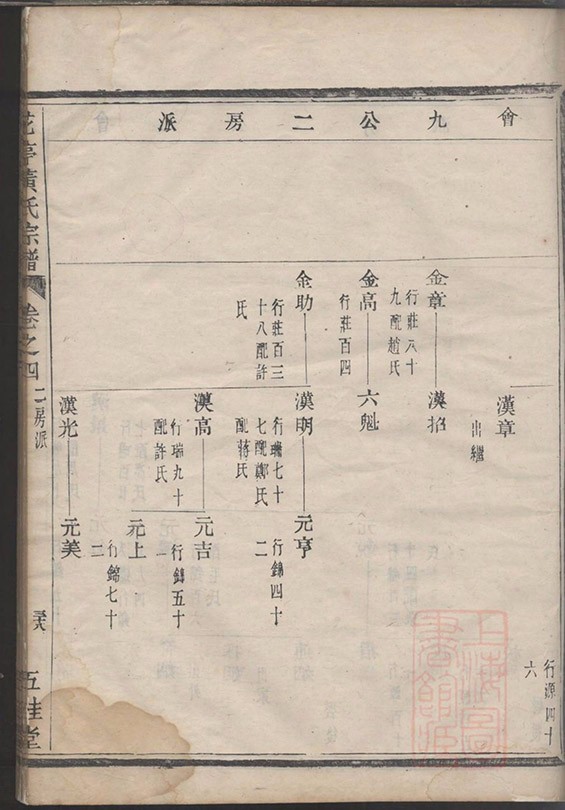 會九公二房派
漢章
出繼
行源四十
六
金章
行莊八十
九配趙氏
漢招
金高
行莊百四
六魁
金助
行莊百三
十八配許
氏
漢明
行瑞七十
七配鄭氏
配蔣氏
元亨
行錦四十
二
漢高
行瑞九十
配許氏
元吉
行錦五十
一
元上
行錦七十
二
漢光
元美
花亭黃氏宗譜
卷之四
二房派
五桂堂